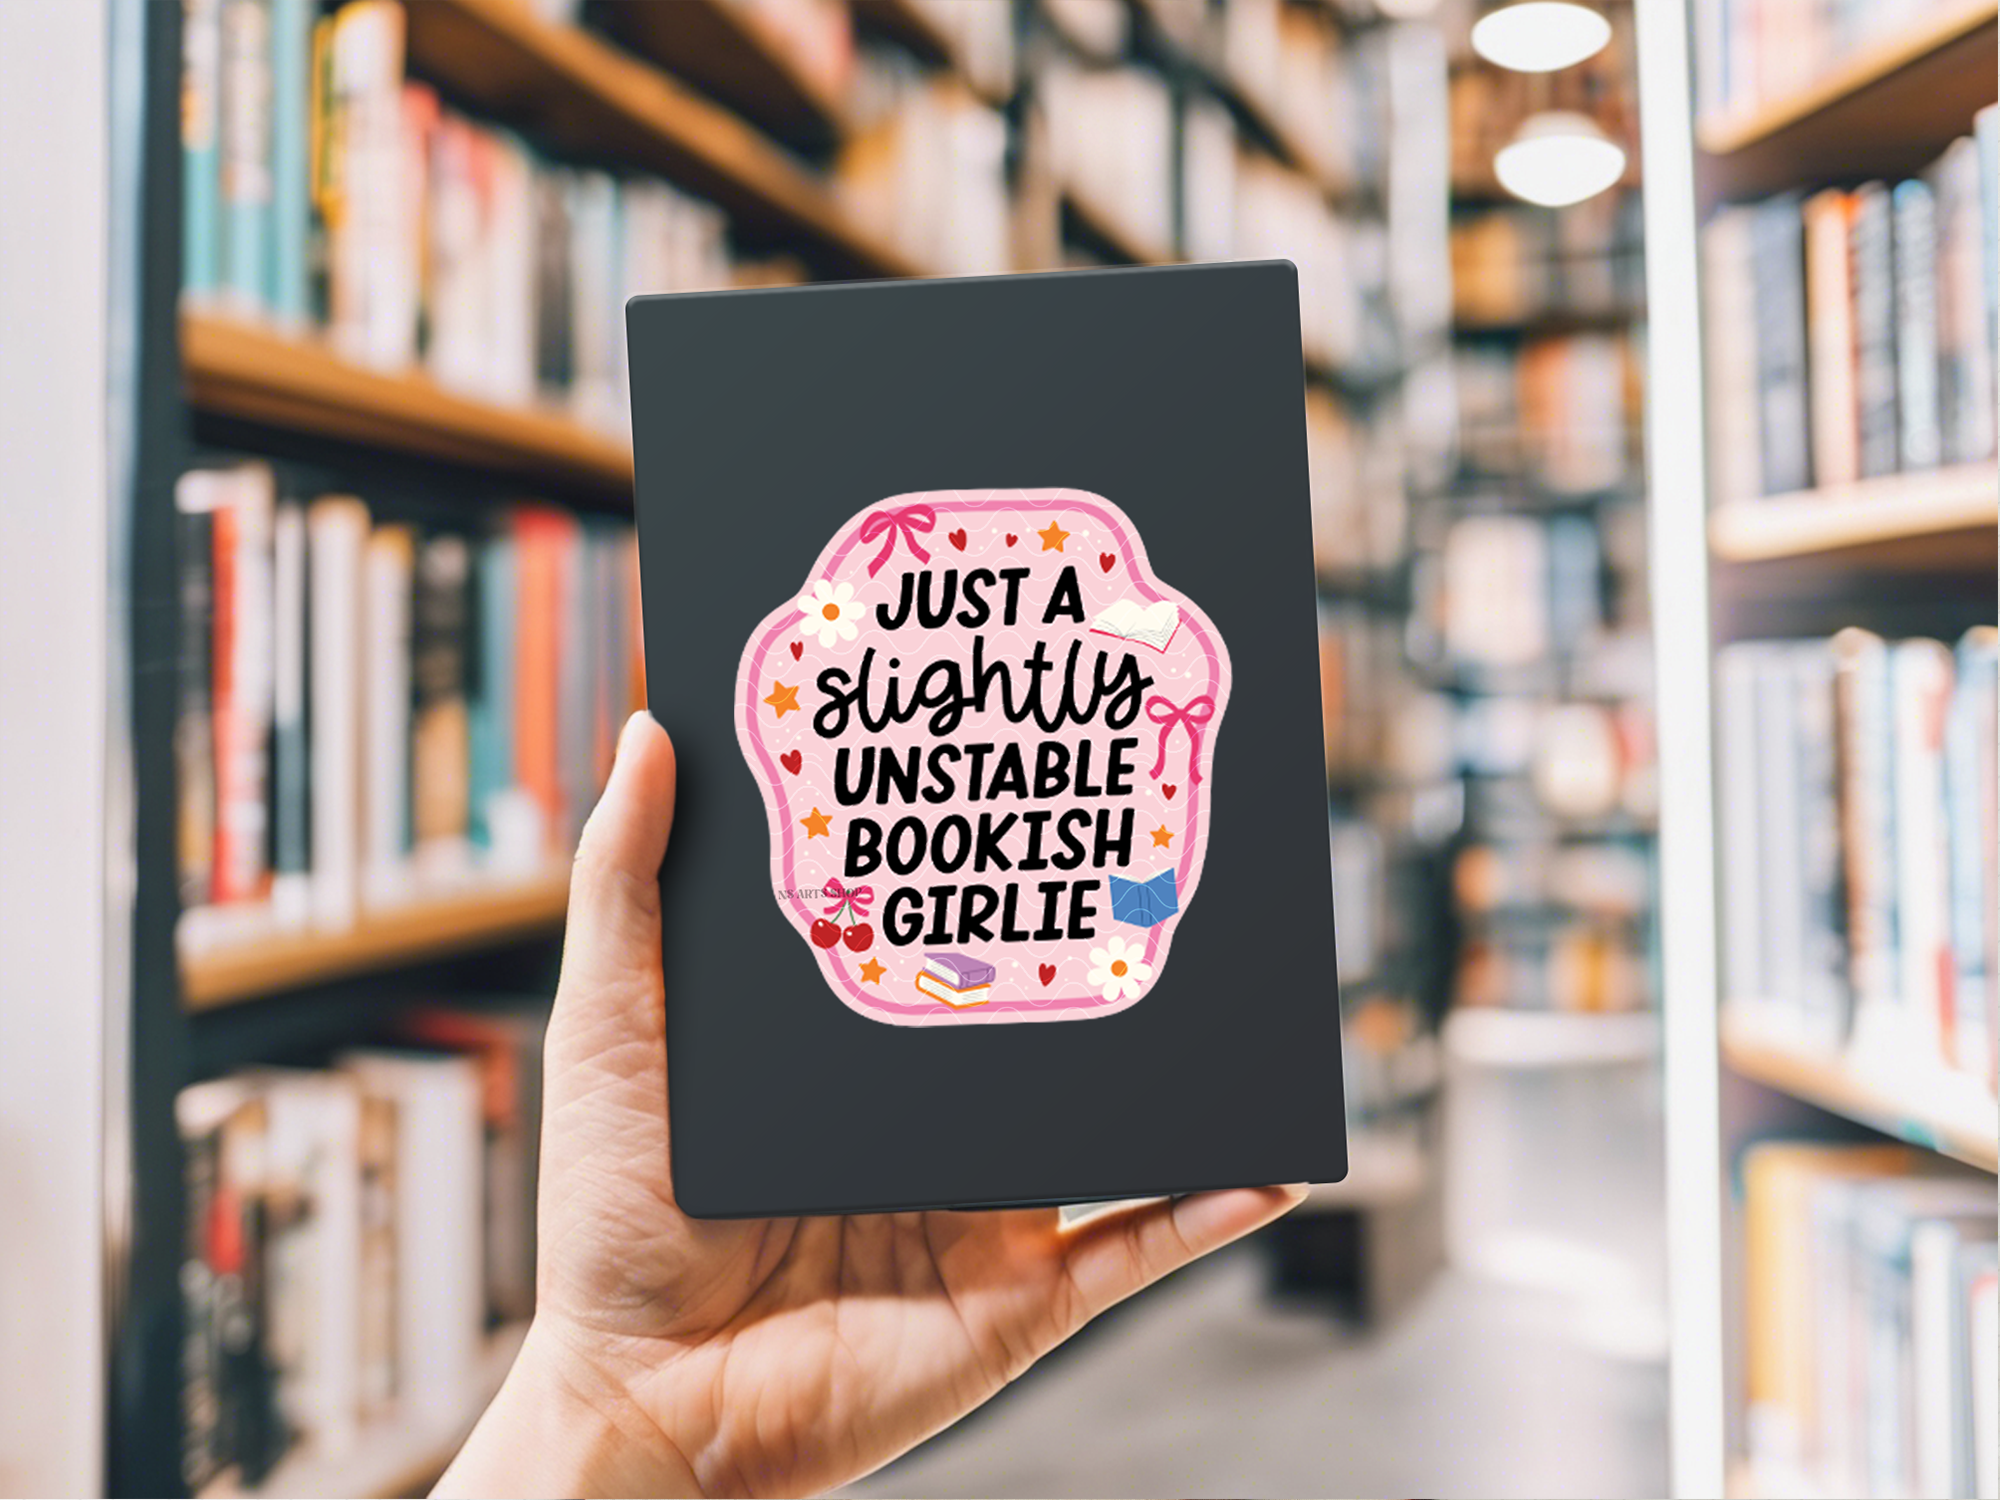 JUST A
slightly
UNSTABLE
BOOKISH
N'S ARTS SHOP
GIRLIE